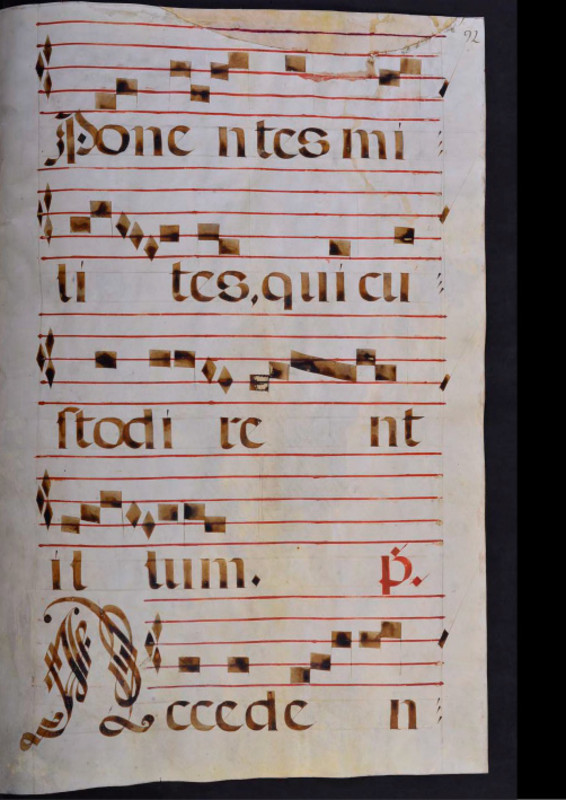 92
Pone ntes mi
li tes, qui cu
stodi re nt
il lum.
p.
Accede n